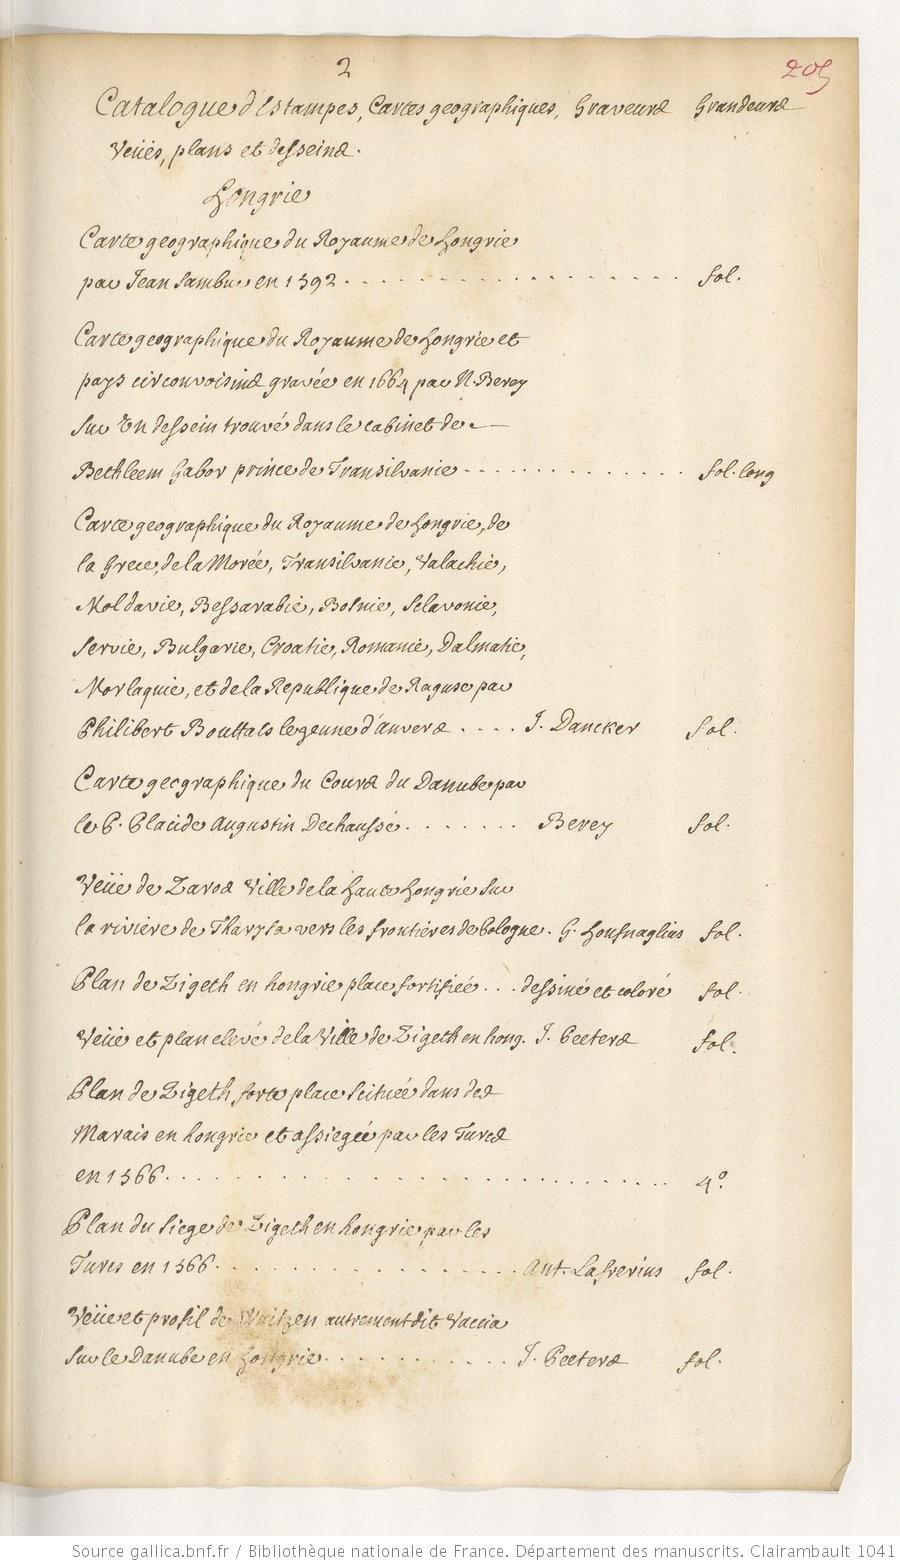 2
205
Catalogue d'Estampes, Cartes geographiques, Graveurs Grandeurs
Veües, plans et desseins.
Hongrie
Carte geographique du Royaume de hongrie
par Jean Sambuc en 1592 . . . . . . . . . . . . . . . . . . fol.
Carte geographique du Royaume de hongrie et
pays circonvoisins gravée en 1664 par N. Berey
sur Un dessein trouvé dans le cabinet de
Bethleem Gabor prince de Transilvanie . . . . . . . . . . . . . . . fol. long
Carte geographique du Royaume de hongrie, de
la Grece, de la Morée, Transilvanie, Valachie,
Moldavie, Bessarabie, Bosnie, Sclavonie,
Servie, Bulgarie, Croatie, Romanie, Dalmatie,
Morlaquie, et de la Republique de Raguse par
Philibert Bouttats le jeune d'anvers . . . . J. Dancker fol.
Carte geographique du Cours du Danube par
le P. Placide Augustin Dechaussé . . . . . . . . Berey fol.
Veüe de Zaros Ville de la haute hongrie sur
la riviere de Tharysa vers les frontieres de Pologne. G. Houfnaglius fol.
Plan de Zigeth en hongrie place fortifiée . . . dessiné et coloré fol.
Veüe et plan elevé de la Ville de Zigeth en hong. J. Peeters fol.
Plan de Zigeth forte place scituée dans des
Marais en hongrie et assiegée par les Turcs
en 1566 . . . . . . . . . . . . . . . . . . . . . . . . . . . . 4.º
Plan du siege de Zigeth en hongrie par les
Turcs en 1566 . . . . . . . . . . . . . . . . . Ant. Lafrerius fol.
Veüe et profil de Waitzen autrement dit Vaccia
sur le Danube en hongrie . . . . . . . . . . . J. Peeters fol.
Source gallica.bnf.fr / Bibliothèque nationale de France. Département des manuscrits. Clairambault 1041